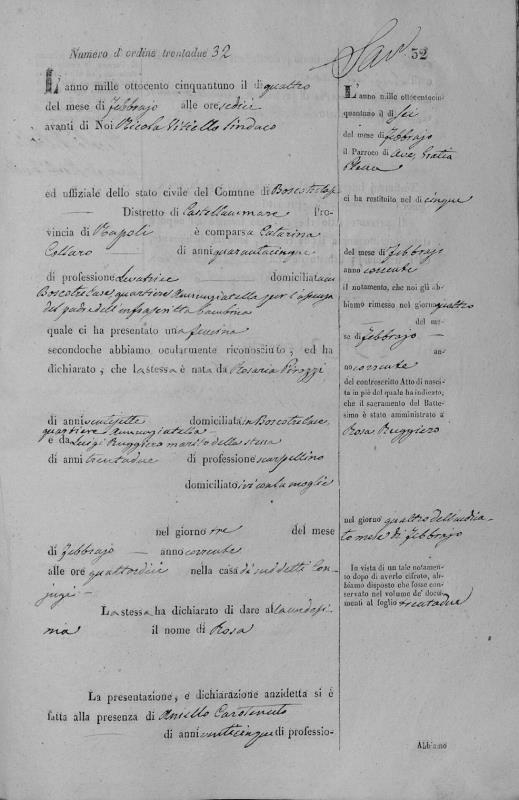 Numero d'ordine trentadue 32
52
L'anno mille ottocento cinquantuno il dì quattro
del mese di Febbrajo alle ore sedici
avanti di Noi Nicola Vitiello Sindaco
ed uffiziale dello stato civile del Comune di Boscotrecase
Distretto di Castellammare Pro-
vincia di Napoli è comparsa Catarina
Collaro di anni quarantacinque
di professione Levatrice domiciliata in
Boscotrecase quartiere Annunziatella per l'assenza
del padre dell'infrascritta bambina
quale ci ha presentato una femina
secondoche abbiamo ocularmente riconosciuto, ed ha
dichiarato, che la stessa è nata da Rosaria
di anni ventisette domiciliata in Boscotrecase
quartiere Annunziatella
e da Luigi Ruggiero marito della stessa
di anni trentadue di professione scarpellino
domiciliato ivi con la moglie
nel giorno tre del mese
di Febbrajo — anno corrente
alle ore quattordici nella casa di suddetti Con-
jugi —
La stessa ha dichiarato di dare alla medesi-
ma il nome di Rosa
La presentazione, e dichiarazione anzidetta si è
fatta alla presenza di Aniello Carotenuto
di anni venticinque di professio-
L'anno mille ottocentocin
quantuno il dì sei
del mese di Febbrajo
il Parroco di Ave, Gratia
Plena
ci ha restituito nel dì cinque
del mese di Febbrajo
anno corrente
il notamento, che noi gli ab-
biamo rimesso nel giorno quattro
— del me-
se di Febbrajo — an-
no corrente
del controscritto Atto di nasci-
ta in piè del quale ha indicato,
che il sacramento del Batte-
simo è stato amministrato a
Rosa Ruggiero
nel giorno quattro dell'indica-
to mese di Febbrajo
In vista di un tale notamen-
to dopo di averlo cifrato, ab-
biamo disposto che fosse con-
servato nel volume de' docu-
menti al foglio trentadue
Abbiamo